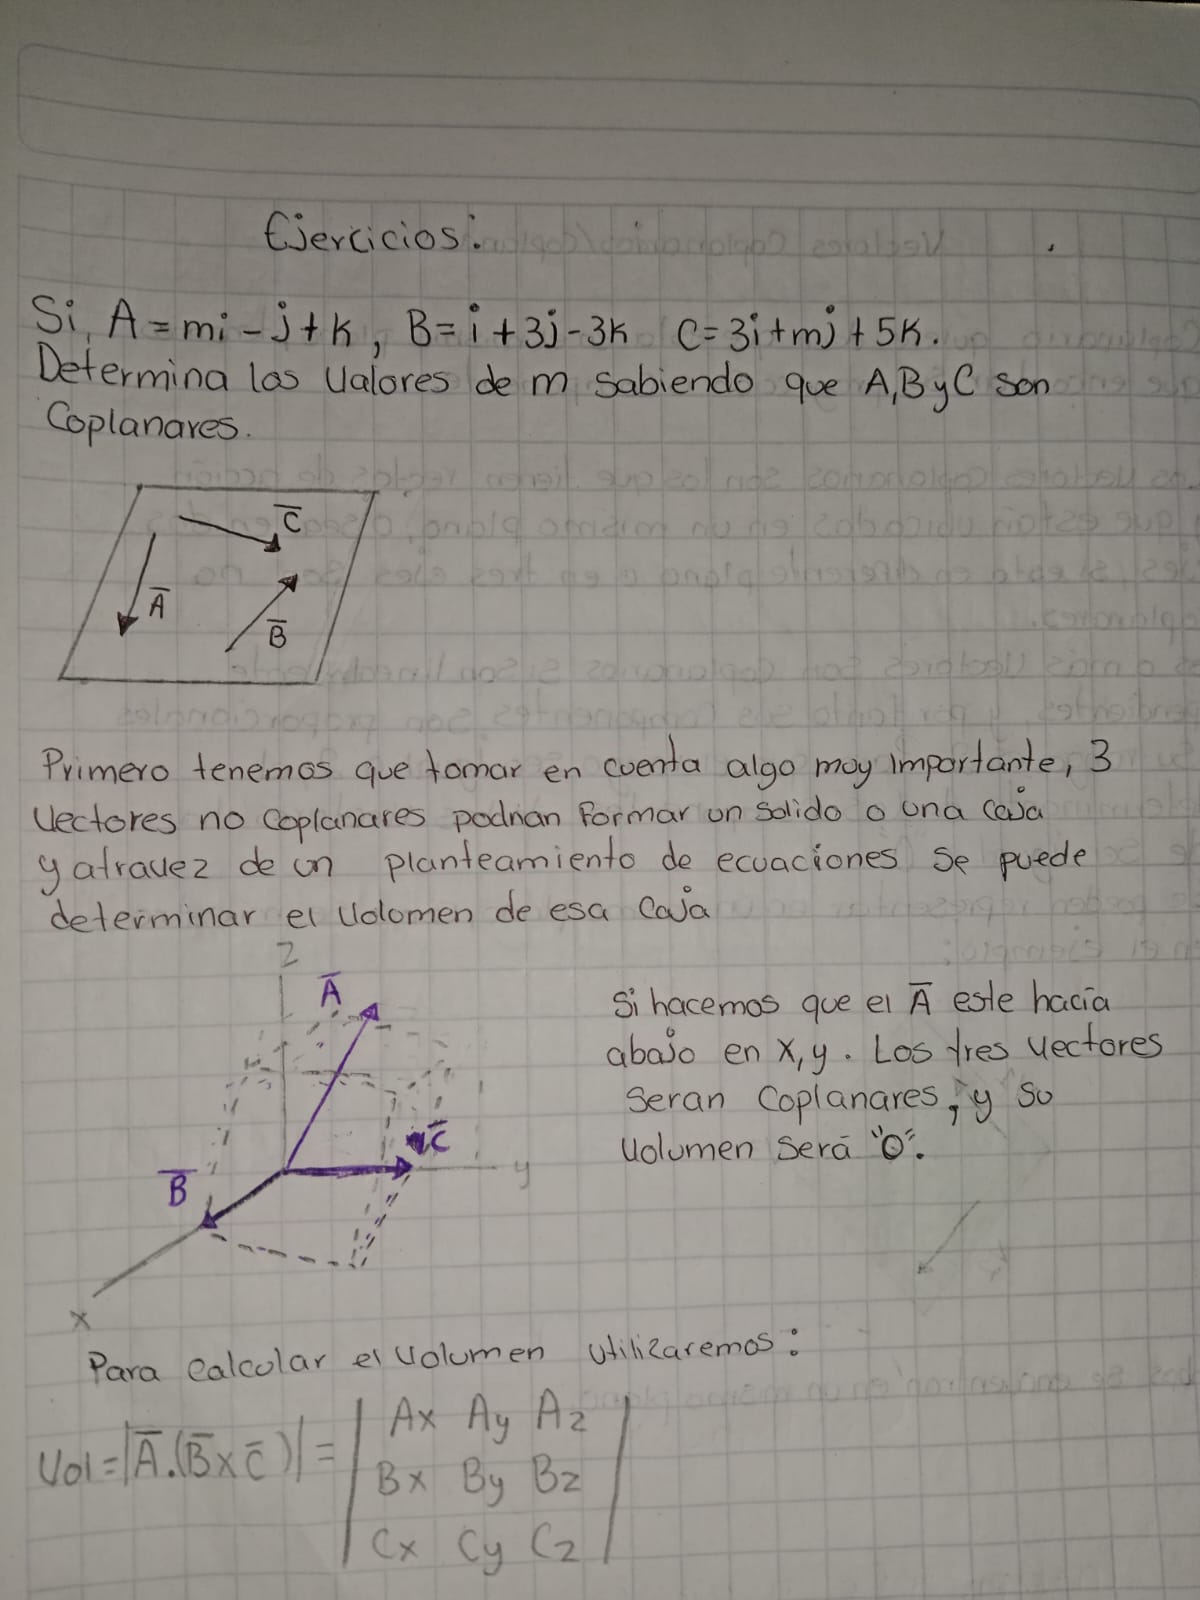 Ejercicios:
Si, A = mi - j + k, B = i + 3j - 3k C = 3i + mj + 5k.
Determina los valores de m sabiendo que A, B y C son
Coplanares.
C̅
A̅
B̅
Primero tenemos que tomar en cuenta algo muy importante, 3
vectores no coplanares podrian formar un solido o una caja
y atravez de un planteamiento de ecuaciones se puede
determinar el volomen de esa caja
Z
A̅
C̅
B̅
y
x
Si hacemos que el A̅ este hacia
abajo en x, y. Los tres vectores
seran Coplanares, y su
volumen será "0".
Para calcular el volumen utilizaremos:
Vol = |A̅.(B̅ x C̅)| = | Ax Ay Az |
| Bx By Bz |
| Cx Cy Cz |